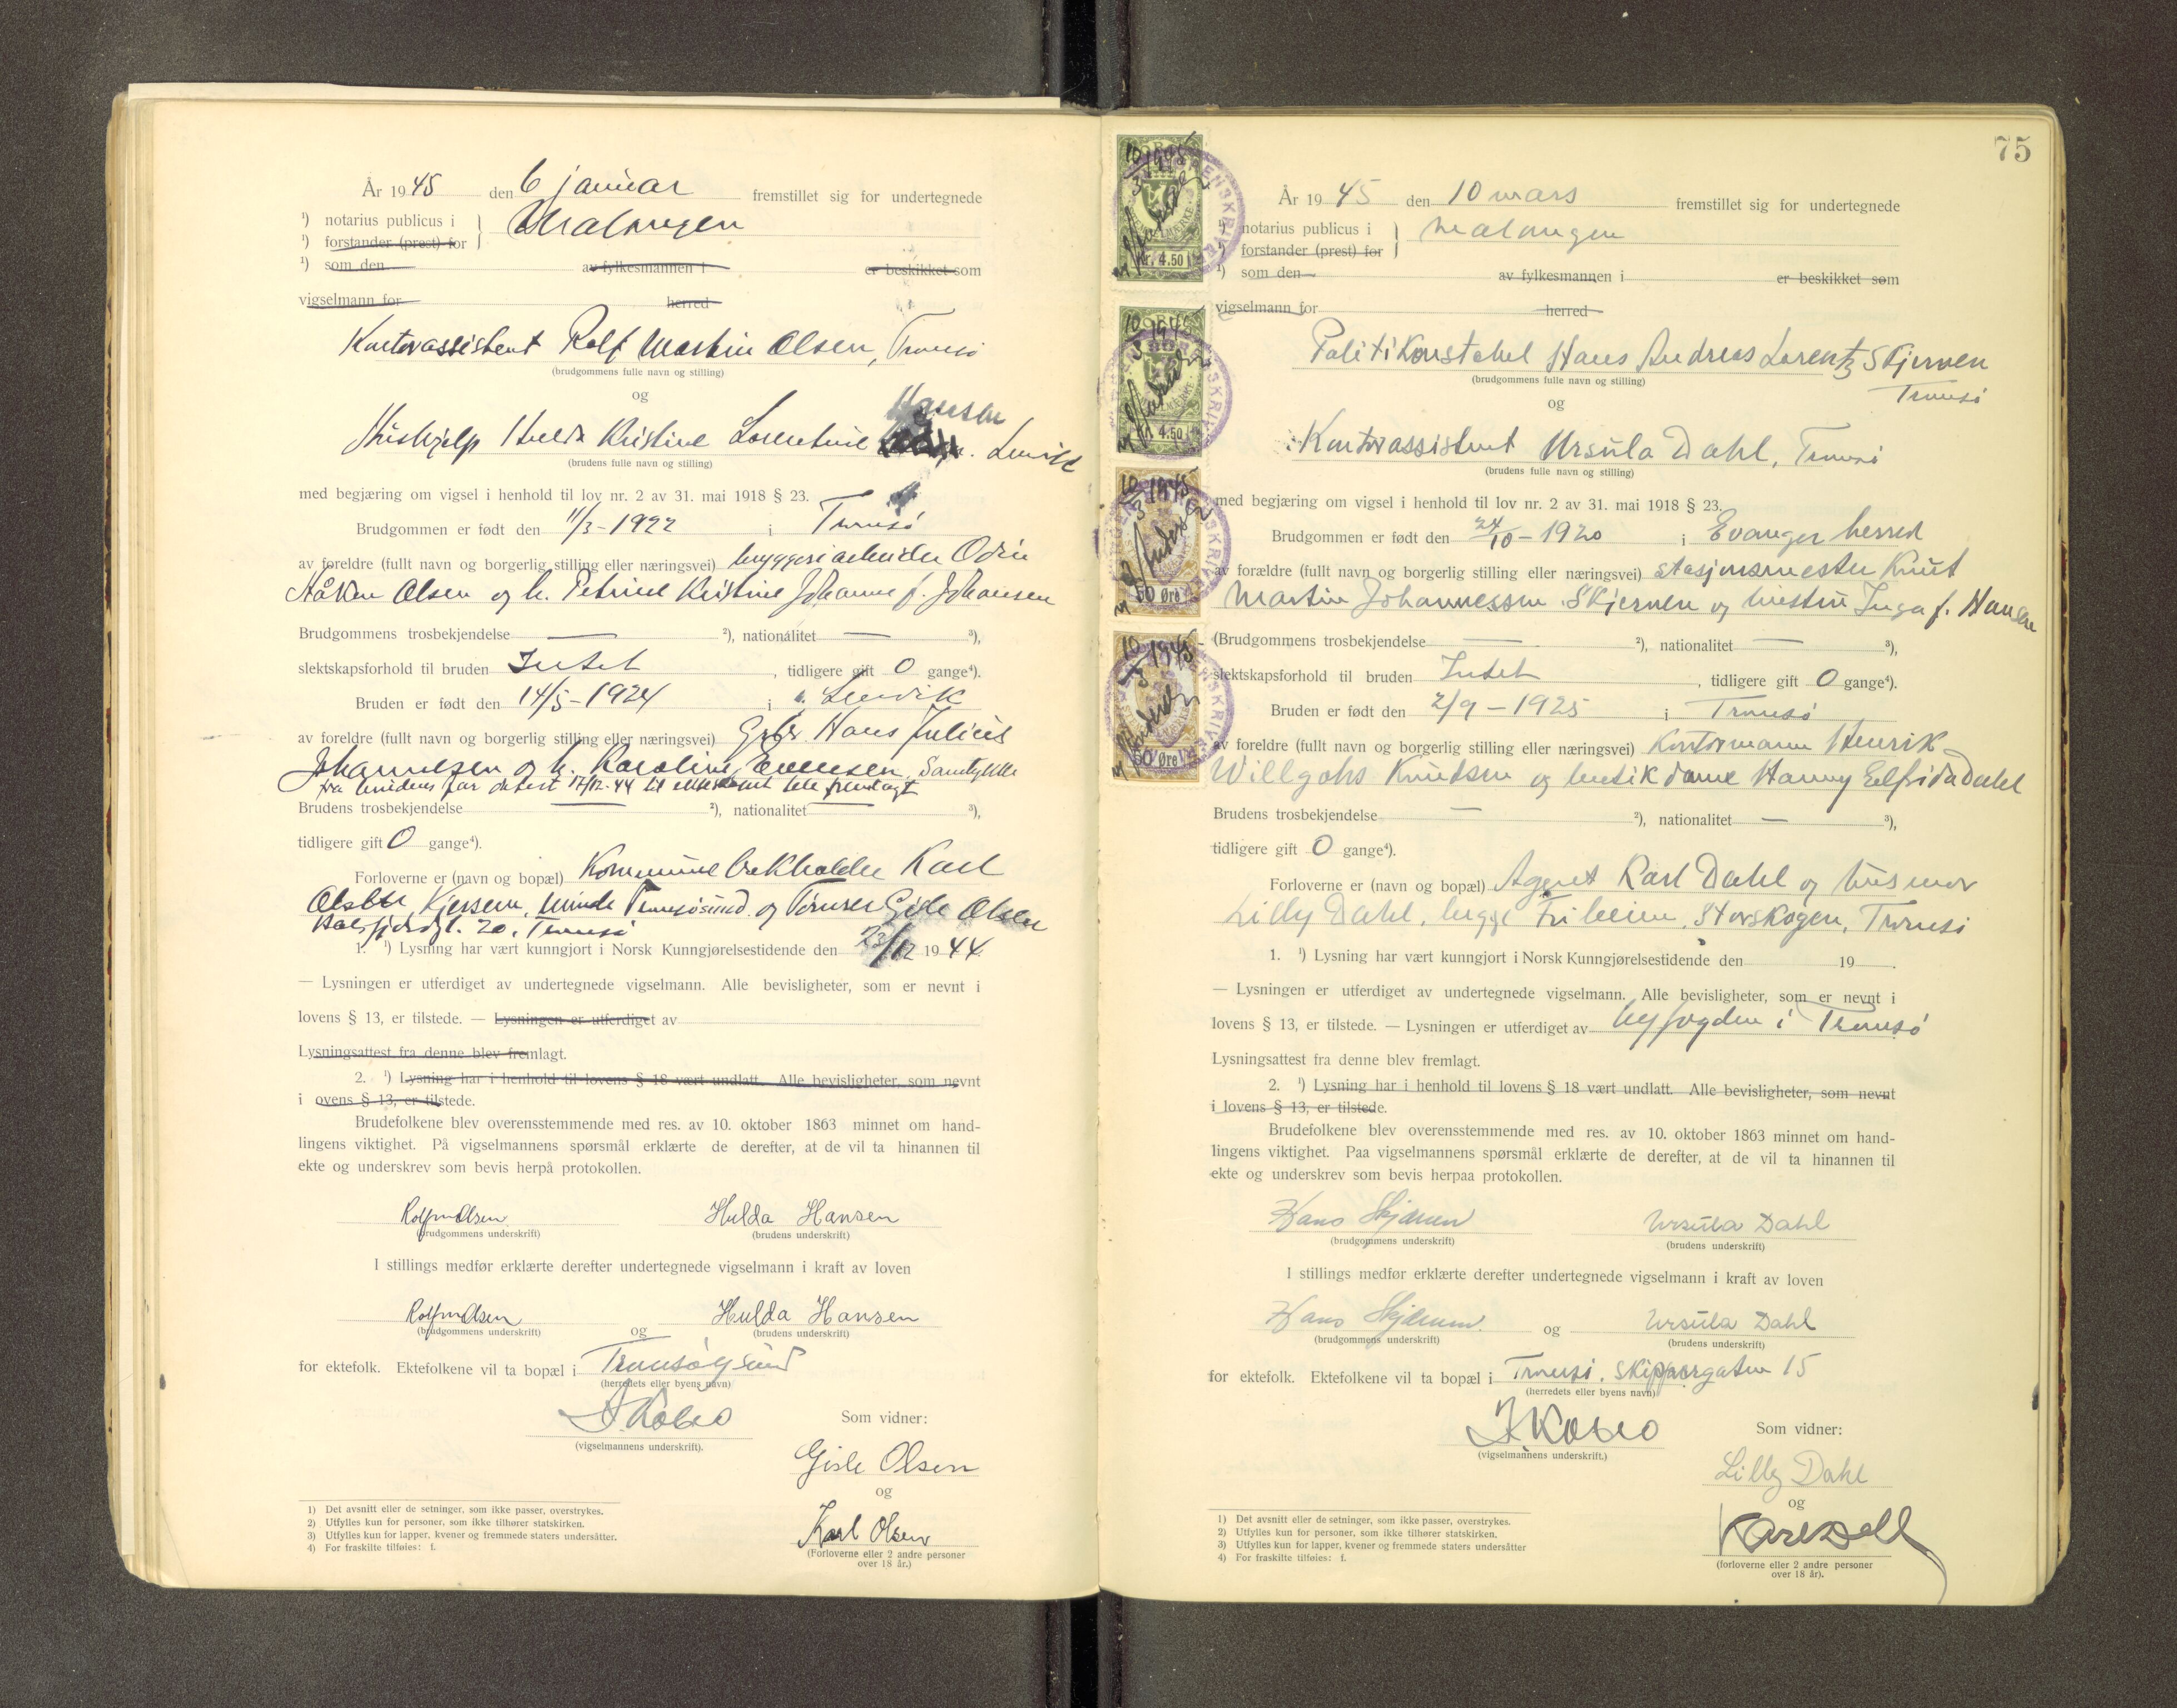 År 1945 den 6 januar fremstillet sig for undertegnede
¹) notarius publicus i } Malangen
¹) forstander (prest) for
¹) som den av fylkesmannen i er beskikket som
vigselmann for herred
Kontorassistent Rolf Martin Olsen, Tromsö
(brudgommens fulle navn og stilling)
og
Hansen
Hushjelp Hulda Kristine Lorentine Lenvik
(brudens fulle navn og stiilling)
med begjæring om vigsel i henhold til lov nr. 2 av 31. mai 1918 § 23.
Brudgommen er født den 11/3-1922 i Tromsö
av foreldre (fullt navn og borgerlig stilling eller næringsvei) bryggeriarbeider Odin
Håkon Olsen og h. Petrine Kristine Johanne f. Johansen
Brudgommens trosbekjendelse — ²), nationalitet — ³),
slektskapsforhold til bruden Intet, tidligere gift 0 gange⁴).
Bruden er født den 14/5-1924 i Lenvik
av foreldre (fullt navn og borgerlig stilling eller næringsvei) Grbr. Hans Julius
Johannessen og h. Karoline Evensen. Samtykke
fra brudens far datert 17/12-44 til ekteskapet ble fremlagt
Brudens trosbekjendelse — ²), nationalitet — ³),
tidligere gift 0 gange⁴).
Forloverne er (navn og bopæl) Kommunebokholder Karl
Olsen, Tromsösund og Törnrer Gisle Olsen
20, Tromsö
1. ¹) Lysning har vært kunngjort i Norsk Kunngjørelsestidende den 23/12 1944.
— Lysningen er utferdiget av undertegnede vigselmann. Alle bevisligheter, som er nevnt i
lovens § 13, er tilstede. — Lysningen er utferdiget av
Lysningsattest fra denne blev fremlagt.
2. ¹) Lysning har i henhold til lovens § 18 vært undlatt. Alle bevisligheter, som nevnt
i ovens § 13, er tilstede.
Brudefolkene blev overensstemmende med res. av 10. oktober 1863 minnet om hand-
lingens viktighet. På vigselmannens spørsmål erklærte de derefter, at de vil ta hinannen til
ekte og underskrev som bevis herpå protokollen.
Rolf M Olsen Hulda Hansen
(brudgommens underskrift) (brudens underskrift)
I stillings medfør erklærte derefter undertegnede vigselmann i kraft av loven
Rolf M Olsen og Hulda Hansen
(brudgommens underskrift) (brudens underskrift)
for ektefolk. Ektefolkene vil ta bopæl i Tromsöysund
(herredets eller byens navn)
(vigselmannens underskrift).
Som vidner:
Gisle Olsen
og
Karl Olsen
(Forloverne eller 2 andre personer
over 18 år.)
1) Det avsnitt eller de setninger, som ikke passer, overstrykes.
2) Utfylles kun for personer, som ikke tilhører statskirken.
3) Utfylles kun for lapper, kvener og fremmede staters undersåtter.
4) For fraskilte tilføies: f.
75
År 1945 den 10 mars fremstillet sig for undertegnede
¹) notarius publicus i } Malangen
¹) forstander (prest) for
¹) som den av fylkesmannen i er beskikket som
vigselmann for herred
Politikonstabel Hans Andreas Lorentz Skjerven
(brudgommens fulle navn og stilling) Tromsö
og
Kontorassistent Ursula Dahl, Tromsö
(brudens fulle navn og stilling)
med begjæring om vigsel i henhold til lov nr. 2 av 31. mai 1918 § 23.
Brudgommen er født den 24/10-1920 i Evanger herred
av forældre (fullt navn og borgerlig stilling eller næringsvei) stasjonsmester Knut
Martin Johannessen Skjerven og hustru Inga f. Hansen
(Brudgommens trosbekjendelse — ²), nationalitet — ³),
slektskapsforhold til bruden Intet, tidligere gift 0 gange⁴).
Bruden er født den 2/9-1925 i Tromsö
av foreldre (fullt navn og borgerlig stilling eller næringsvei) Kontormann Henrik
Willgohs Knudsen og butikdame Hanny Elfrida Dahl
Brudens trosbekjendelse — ²), nationalitet — ³),
tidligere gift 0 gange⁴).
Forloverne er (navn og bopæl) Agent Karl Dahl og husmor
Lilly Dahl, begge Friheim, Storskogen, Tromsö
1. ¹) Lysning har vært kunngjort i Norsk Kunngjørelsestidende den 19 .
— Lysningen er utferdiget av undertegnede vigselmann. Alle bevisligheter, som er nevnt i
lovens § 13, er tilstede. — Lysningen er utferdiget av byfogden i Tromsö
Lysningsattest fra denne blev fremlagt.
2. ¹) Lysning har i henhold til lovens § 18 vært undlatt. Alle bevisligheter, som nevnt
i lovens § 13, er tilstede.
Brudefolkene blev overensstemmende med res. av 10. oktober 1863 minnet om hand-
lingens viktighet. Paa vigselmannens spørsmål erklærte de derefter, at de vil ta hinannen til
ekte og underskrev som bevis herpaa protokollen.
Hans Skjerven Ursula Dahl
(brudgommens underskrift) (brudens underskrift)
I stillings medfør erklærte derefter undertegnede vigselmann i kraft av loven
Hans Skjerven og Ursula Dahl
(brudgommens underskrift) (brudens underskrift)
for ektefolk. Ektefolkene vil ta bopæl i Tromsö. Skippergaten 15
(herredets eller byens navn)
(vigselmannens underskrift.)
Som vidner:
Lilly Dahl
og
Karl Dahl
(forloverne eller 2 andre personer
over 18 år).
1) Det avsnitt eller de setninger, som ikke passer, overstrykes.
2) Utfylles kun for personer, som ikke tilhører statskirken.
3) Utfylles kun for lapper, kvener og fremmede staters undersåtter
4) For fraskilte tilføies: f.
Kr. 4.50
4.50
50 Øre
50 Øre